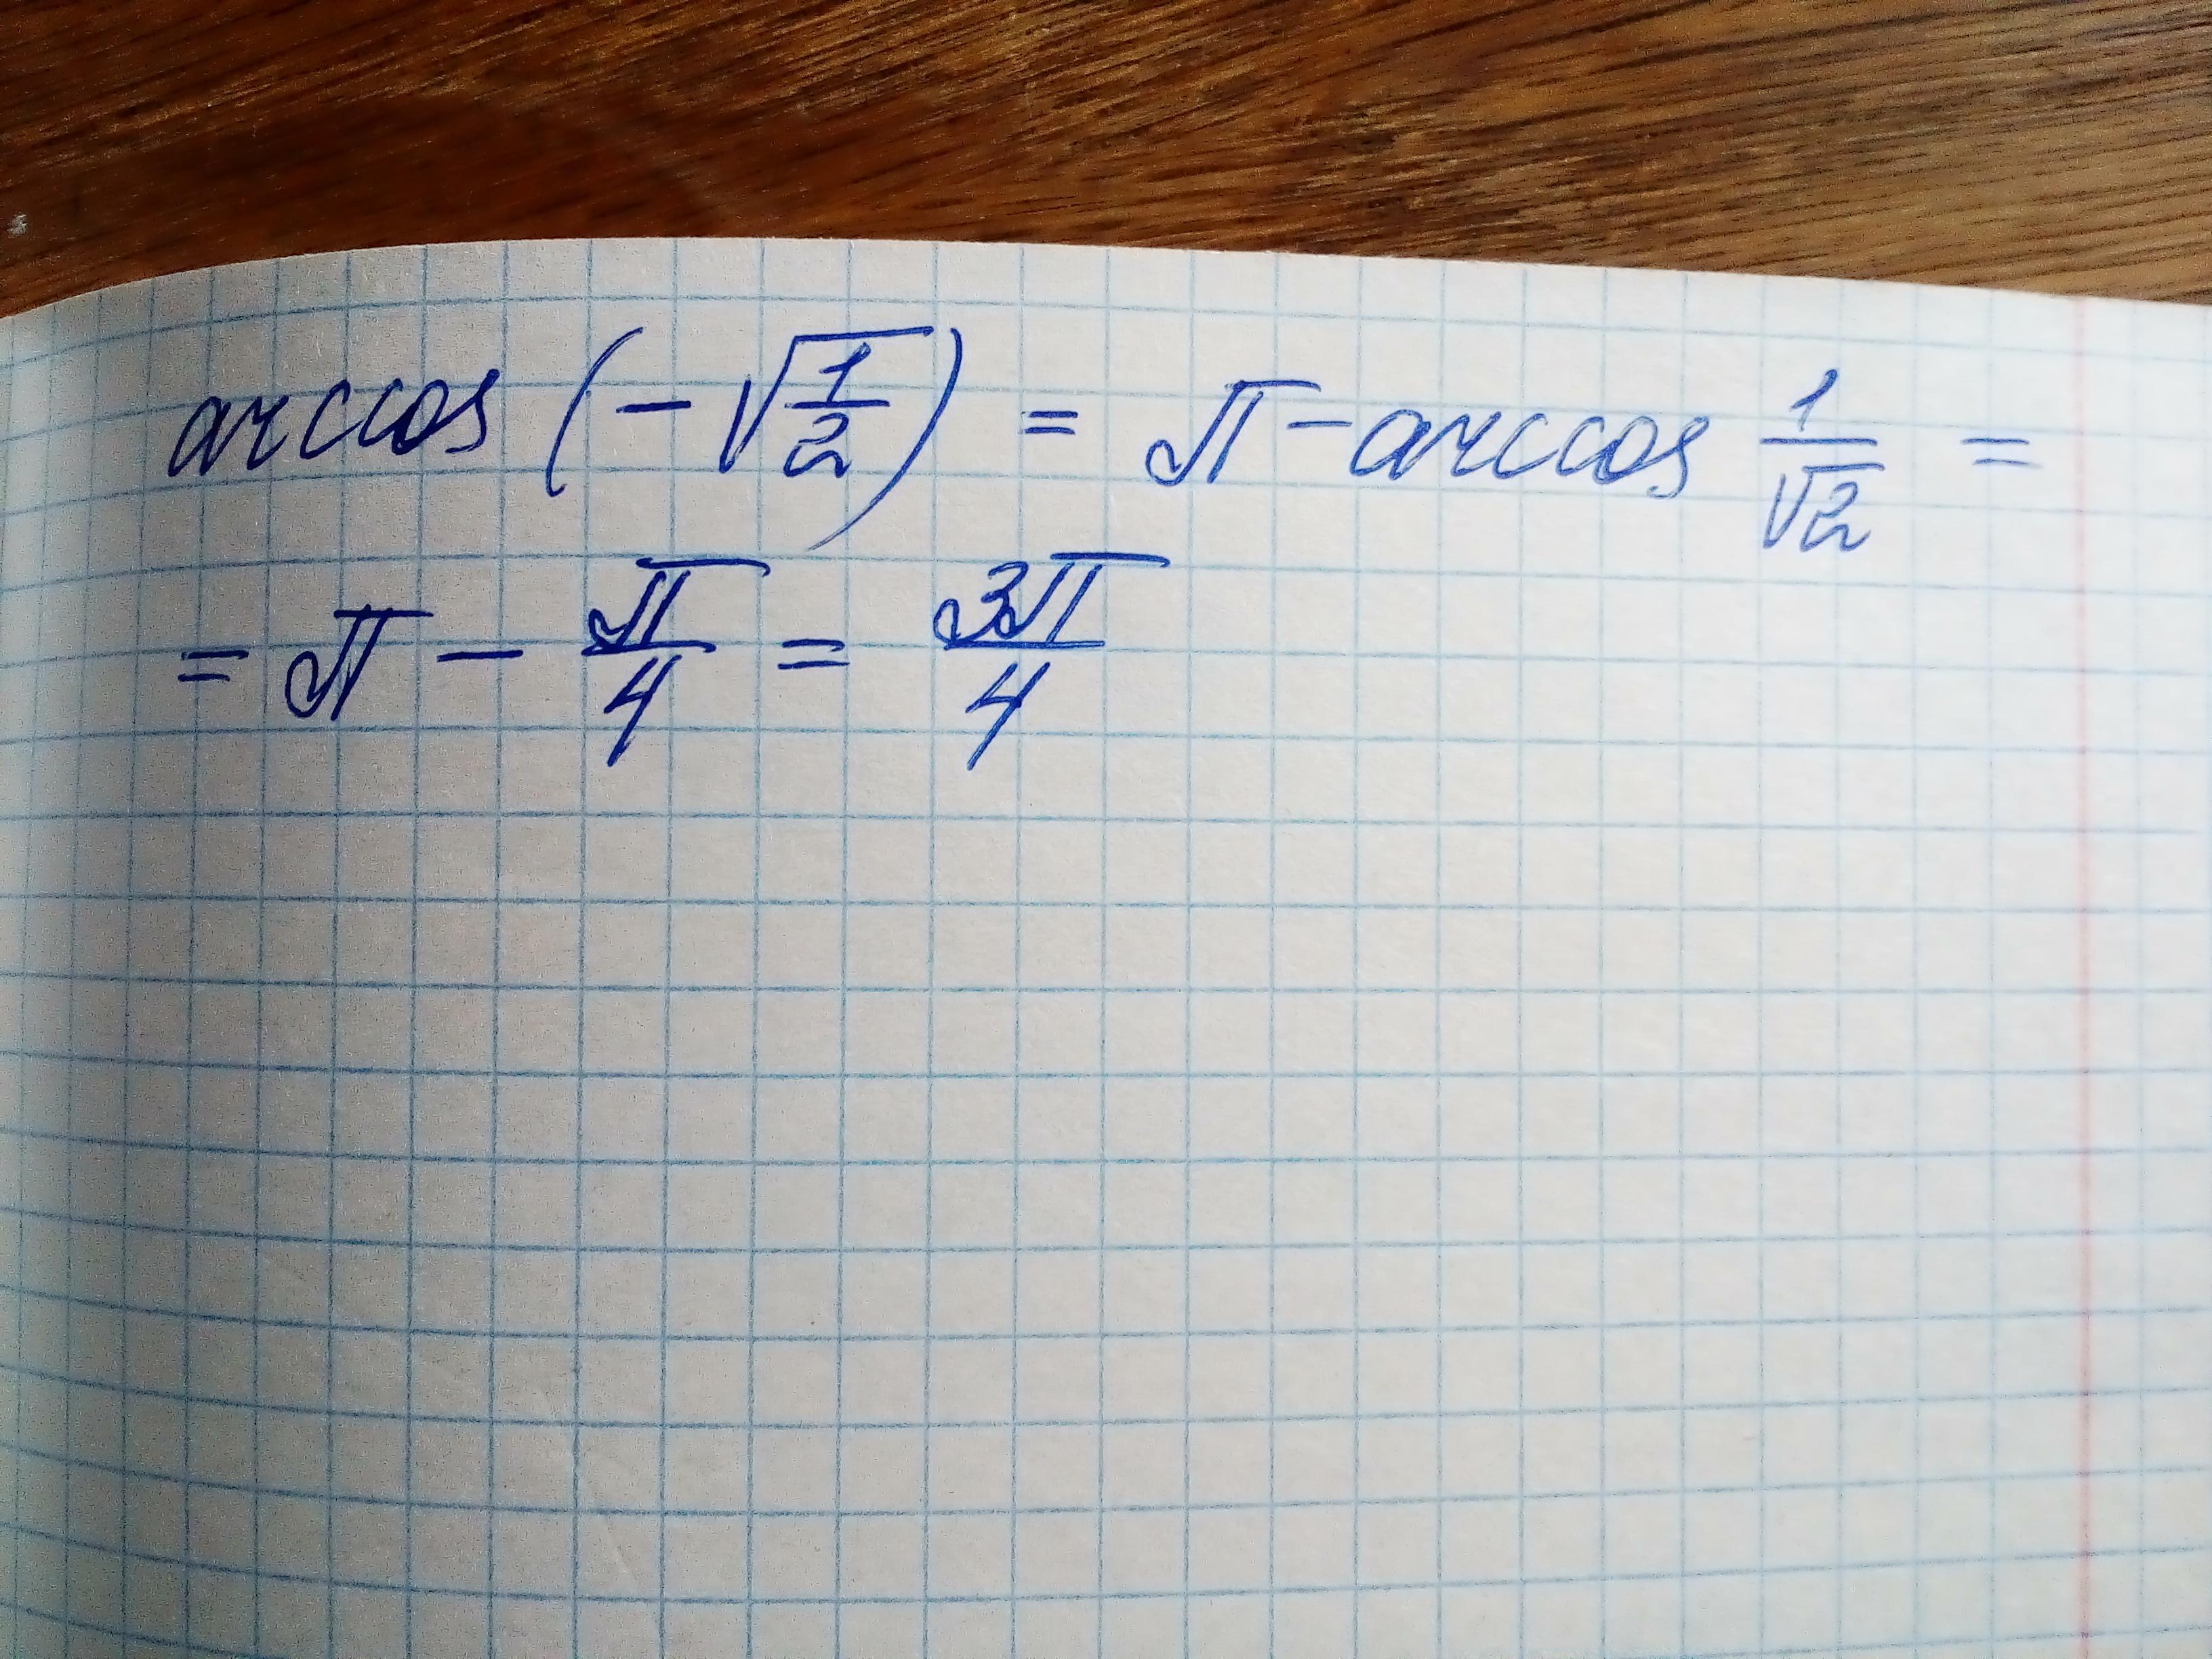 arccos (-√(1/2)) = π - arccos 1/√2 =
= π - π/4 = 3π/4